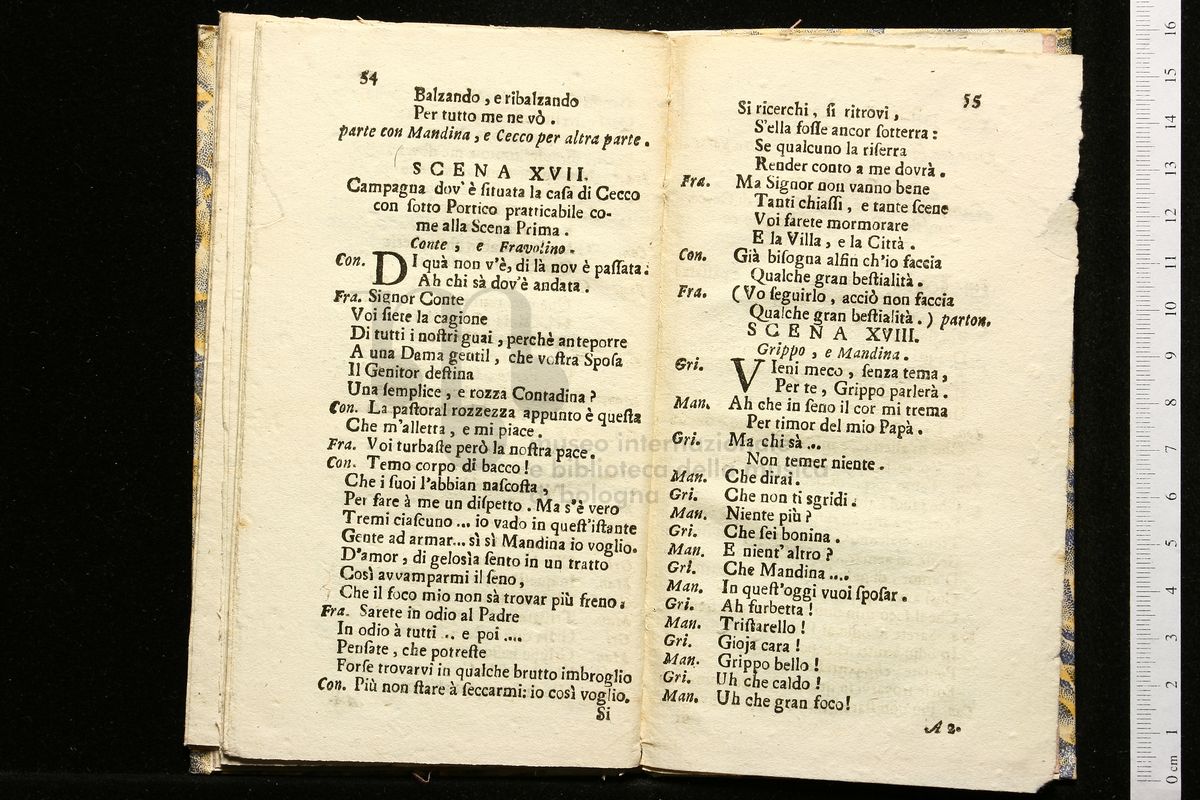 54
Balzando , e ribalzando
Per tutto me ne vò .
parte con Mandina , e Cecco per altra parte .
SCENA XVII.
Campagna dov' è ſituata la caſa di Cecco
con ſotto Portico pratticabile co-
me alla Scena Prima .
Conte , e Fravolino .
Con. DI quà non v'è, di là nov è paſſata.
Ah chi sà dov'è andata .
Fra. Signor Conte
Voi ſiete la cagione
Di tutti i noſtri guai , perchè anteporre
A una Dama gentil , che voſtra Spoſa
Il Genitor deſtina
Una ſemplice , e rozza Contadina ?
Con. La paſtoral rozzezza appunto è queſta
Che m'alletta , e mi piace .
Fra. Voi turbaſte però la noſtra pace .
Con. Temo corpo di bacco !
Che i ſuoi l'abbian naſcoſta ,
Per fare à me un diſpetto . Ma s'è vero
Tremi ciaſcuno ... io vado in queſt'iſtante
Gente ad armar... sì sì Mandina io voglio.
D'amor , di gelosìa ſento in un tratto
Così avvamparmi il ſeno ,
Che il foco mio non sà trovar più freno .
Fra. Sarete in odio al Padre
In odio à tutti .. e poi ....
Penſate , che potreſte
Forſe trovarvi in qualche brutto imbroglio
Con. Più non ſtare à ſeccarmi: io così voglio.
Si
55
Si ricerchi , ſi ritrovi ,
S'ella foſſe ancor ſotterra :
Se qualcuno la riſerra
Render conto a me dovrà .
Fra. Ma Signor non vanno bene
Tanti chiaſſi , e tante ſcene
Voi farete mormorare
E la Villa , e la Città .
Con. Già biſogna alfin ch'io faccia
Qualche gran beſtialità .
Fra. (Vo ſeguirlo , acciò non faccia
Qualche gran beſtialità . ) parton.
SCENA XVIII.
Grippo , e Mandina .
Gri. VIeni meco , ſenza tema ,
Per te , Grippo parlerà .
Man. Ah che in ſeno il cor mi trema
Per timor del mio Papà .
Gri. Ma chi sà ...
Non temer niente .
Man. Che dirai .
Gri. Che non ti sgridi .
Man. Niente più ?
Gri. Che ſei bonina .
Man. E nient' altro ?
Gri. Che Mandina ....
Man. In queſt'oggi vuoi ſpoſar .
Gri. Ah furbetta !
Man. Triſtarello !
Gri. Gioja cara !
Man. Grippo bello !
Gri. Uh che caldo !
Man. Uh che gran foco!
A 2.
museo internazionale
e biblioteca della musica
di bologna
0 cm 1 2 3 4 5 6 7 8 9 10 11 12 13 14 15 16